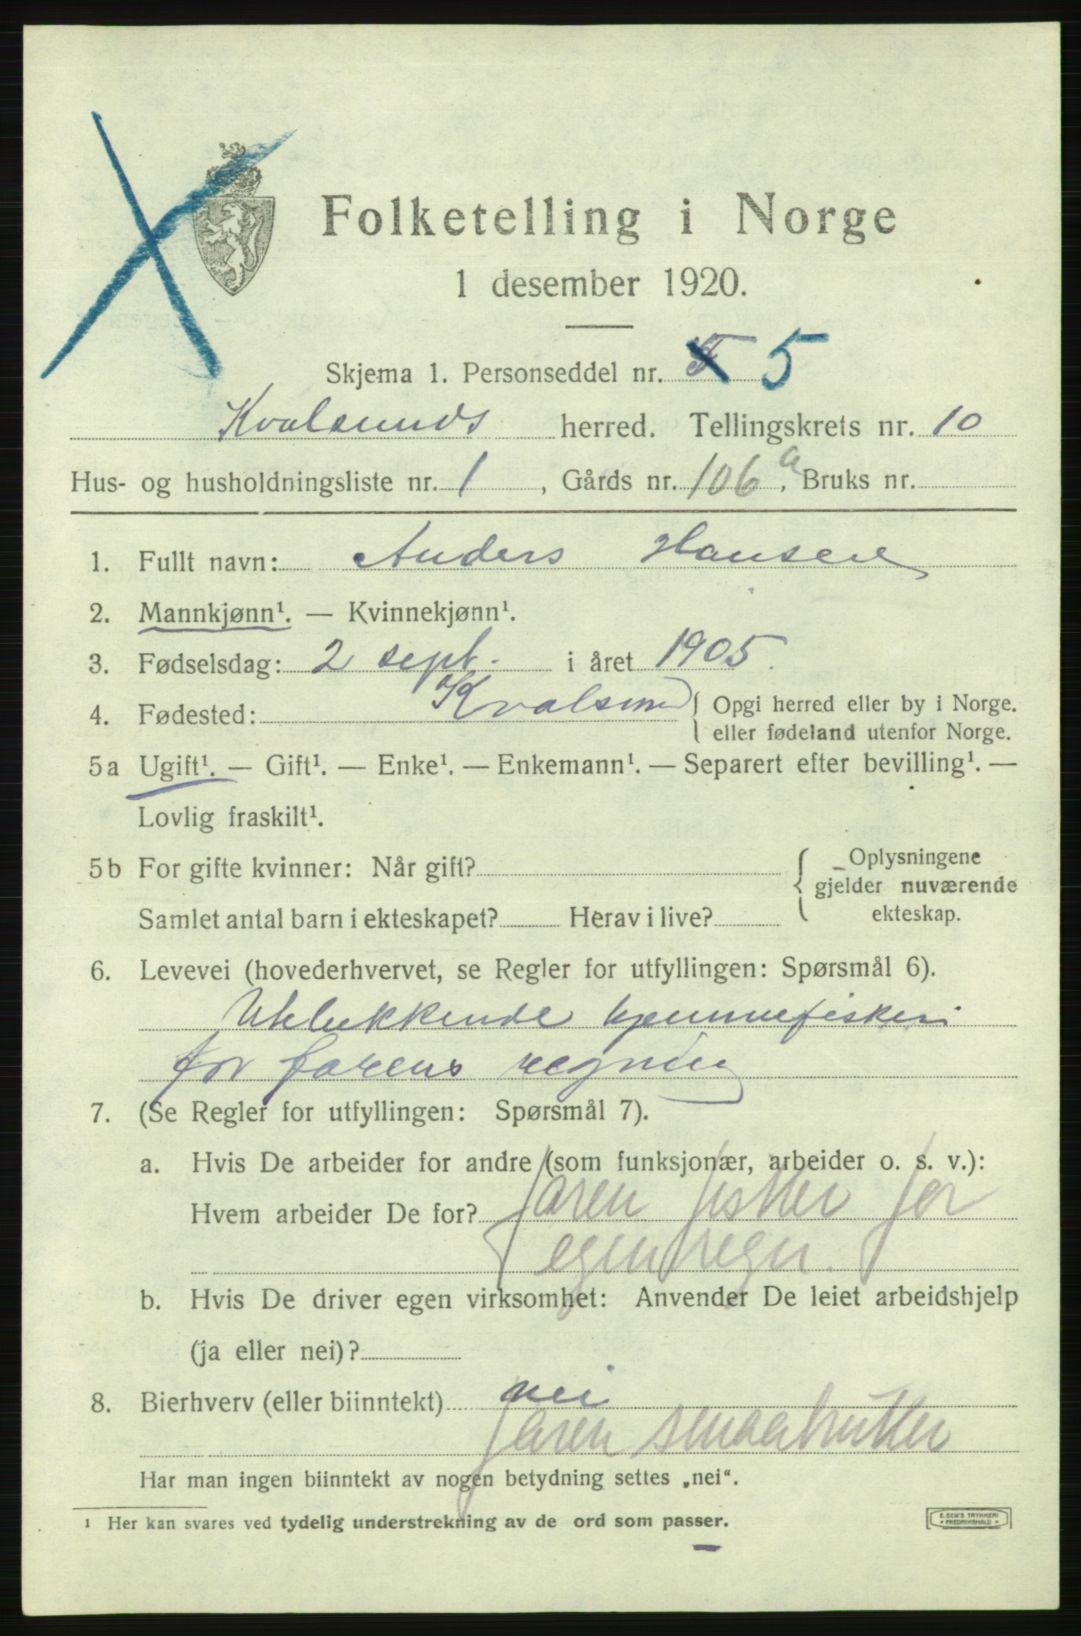 Folketelling i Norge
1 desember 1920.
Skjema 1. Personseddel nr. 5
Kvalsunds herred. Tellingskrets nr. 10
Hus- og husholdningsliste nr. 1, Gårds nr. 106 a, Bruks nr.
1. Fullt navn: Anders Hansen
2. Mannkjønn¹. — Kvinnekjønn¹.
3. Fødselsdag: 2 sept. i året 1905.
4. Fødested: Kvalsund { Opgi herred eller by i Norge.
eller fødeland utenfor Norge.
5a Ugift¹. — Gift¹. — Enke¹. — Enkemann¹. — Separert efter bevilling¹. —
Lovlig fraskilt¹.
5b For gifte kvinner: Når gift? { Oplysningene
gjelder nuværende
ekteskap.
Samlet antal barn i ekteskapet? Herav i live?
6. Levevei (hovederhvervet, se Regler for utfyllingen: Spørsmål 6).
Utelukkende hjemmefiskeri
for farens regning
7. (Se Regler for utfyllingen: Spørsmål 7).
a. Hvis De arbeider for andre (som funksjonær, arbeider o. s. v.):
Hvem arbeider De for? faren fisker for
egen regn.
b. Hvis De driver egen virksomhet: Anvender De leiet arbeidshjelp
(ja eller nei)?
8. Bierhverv (eller biinntekt) nei
faren smaabruker
Har man ingen biinntekt av nogen betydning settes „nei“.
¹ Her kan svares ved tydelig understrekning av de ord som passer.
E. SEM'S TRYKKERI
FREDRIKSHALD